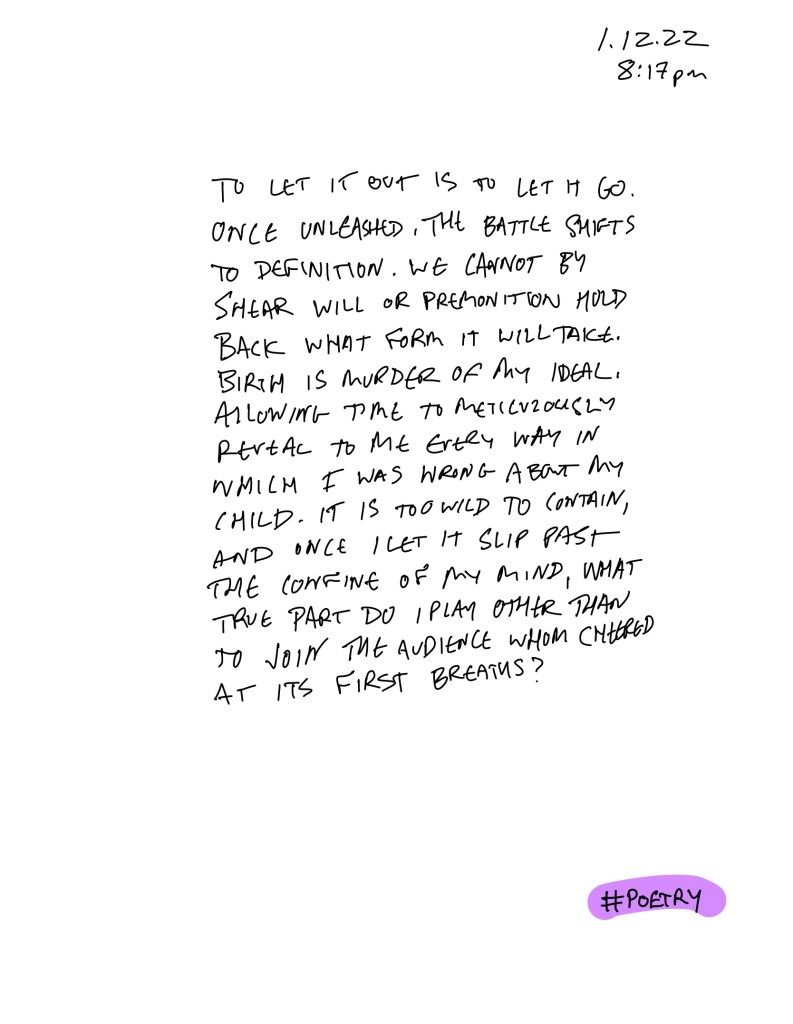 1.12.22
8:17pm
TO LET IT OUT IS TO LET IT GO.
ONCE UNLEASHED, THE BATTLE SHIFTS
TO DEFINITION. WE CANNOT BY
SHEAR WILL OR PREMONITION HOLD
BACK WHAT FORM IT WILL TAKE.
BIRTH IS MURDER OF MY IDEAL.
ALLOWING TIME TO METICULOUSLY
REVEAL TO ME EVERY WAY IN
WHICH I WAS WRONG ABOUT MY
CHILD. IT IS TOO WILD TO CONTAIN,
AND ONCE I LET IT SLIP PAST
THE CONFINE OF MY MIND, WHAT
TRUE PART DO I PLAY OTHER THAN
TO JOIN THE AUDIENCE WHOM CHEERED
AT ITS FIRST BREATHS?
#POETRY